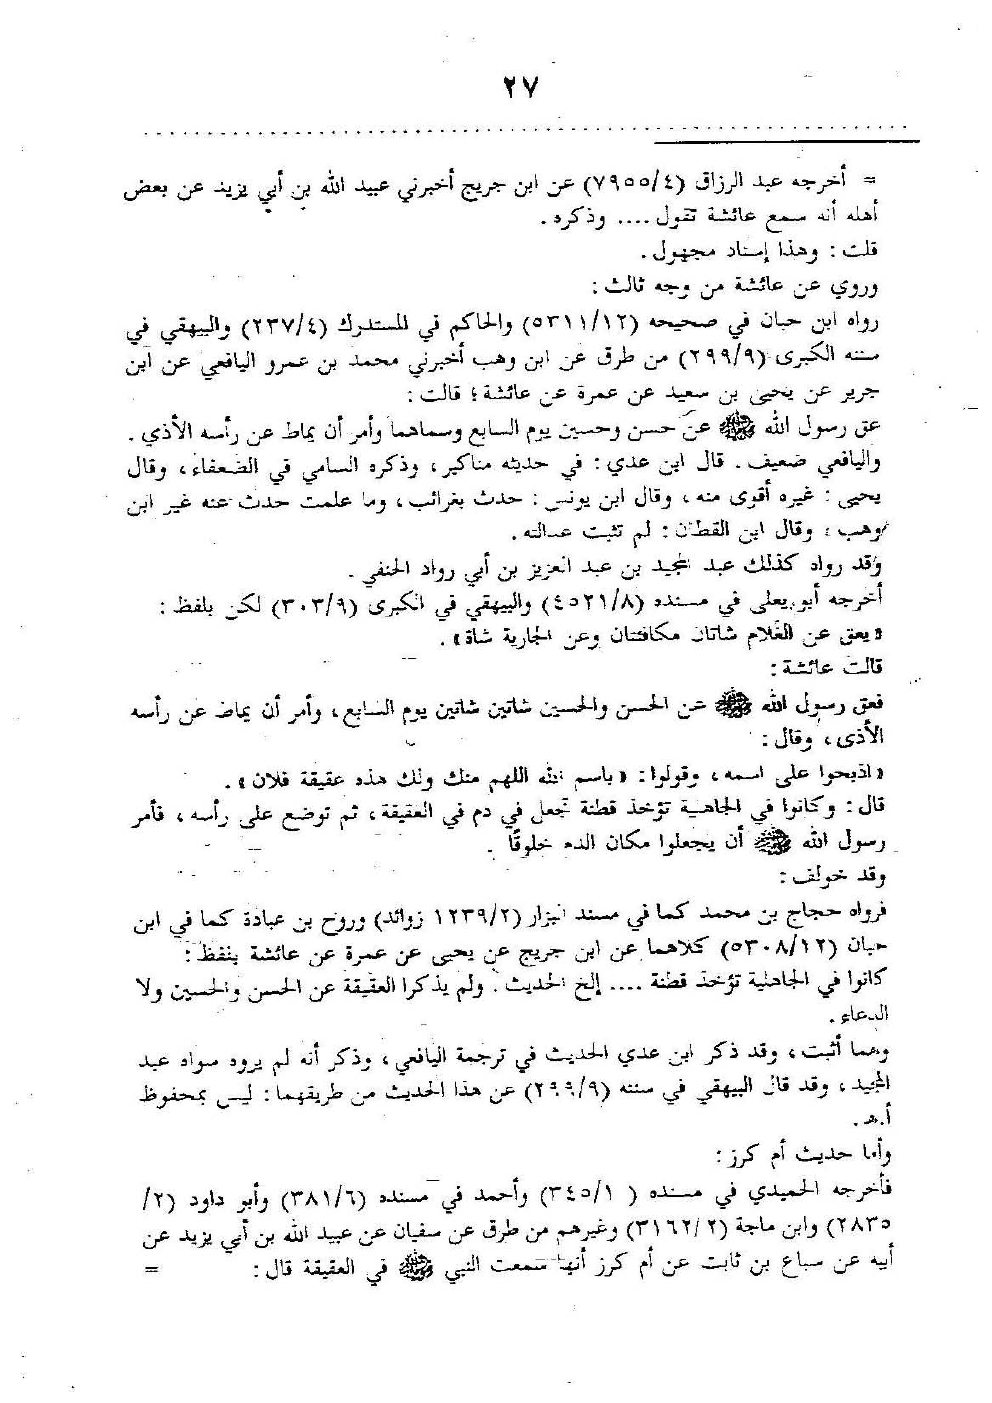 ٢٧
= أخرجه عبد الرزاق (٧٩٥٥/٤) عن ابن جريج أخبرني عبيد الله بن أبي يزيد عن بعض
أهله أنه سمع عائشة تقول .... وذكره .
قلت : وهذا إسناد مجهول .
وروي عن عائشة من وجه ثالث :
رواه ابن حبان في صحيحه (٥٣١١/١٢) والحاكم في المستدرك (٢٣٧/٤) والبيهقي في
سننه الكبرى (٢٩٩/٩) من طرق عن ابن وهب أخبرني محمد بن عمرو اليافعي عن ابن
جرير عن يحيى بن سعيد عن عمرة عن عائشة ؛ قالت :
عق رسول الله ﷺ عن حسن وحسين يوم السابع وسماهما وأمر أن يماط عن رأسه الأذي .
واليافعي ضعيف . قال ابن عدي : في حديثه مناكير ، وذكره السامي في الضعفاء ، وقال
يحيى : غيره أقوى منه ، وقال ابن يونس : حدث بغرائب ، وما علمت حدث عنه غير ابن
وهب ، وقال ابن القطان : لم تثبت عدالته .
وقد رواه كذلك عبد المجيد بن عبد العزيز بن أبي رواد الحنفي .
أخرجه أبو يعلى في مسنده (٤٥٢١/٨) والبيهقي في الكبرى (٣٠٣/٩) لكن بلفظ :
« يعق عن الغلام شاتان مكافتتان وعن الجارية شاة » .
قالت عائشة :
فعق رسول الله ﷺ عن الحسن والحسين شاتين شاتين يوم السابع ، وأمر أن يماط عن رأسه
الأذى ، وقال :
« اذبحوا على اسمه ، وقولوا : « باسم الله اللهم منك ولك هذه عقيقة فلان » .
قال : وكانوا في الجاهية تؤخذ قطنة تجعل في دم في العقيقة ، ثم توضع على رأسه ، فأمر
رسول الله ﷺ أن يجعلوا مكان الدم خلوقًا .
وقد خولف :
فرواه حجاج بن محمد كما في مسند البزار (١٢٣٩/٢ زوائد) وروح بن عبادة كما في ابن
حبان (٥٣٠٨/١٢) كلاهما عن ابن جريج عن يحيى عن عمرة عن عائشة بلفظ :
كانوا في الجاهلية تؤخذ قطنة .... إلخ الحديث . ولم يذكرا العقيقة عن الحسن والحسين ولا
الدعاء .
وهما أثبت ، وقد ذكر ابن عدي الحديث في ترجمة اليافعي ، وذكر أنه لم يروه سواه عبد
المجيد ، وقد قال البيهقي في سننه (٢٩٩/٩) عن هذا الحديث من طريقهما : ليس بمحفوظ
أ.هـ .
وأما حديث أم كرز :
فأخرجه الحميدي في مسنده ( ٣٤٥/١) وأحمد في مسنده (٣٨١/٦) وأبو داود (٢/
٢٨٣٥) وابن ماجة (٣١٦٢/٢) وغيرهم من طرق عن سفيان عن عبيد الله بن أبي يزيد عن
أبيه عن سباع بن ثابت عن أم كرز أنها سمعت النبي ﷺ في العقيقة قال : =